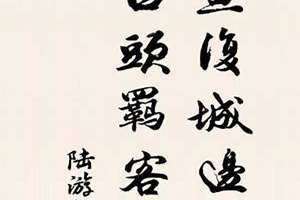 復城邊
白頭羈客
陸游